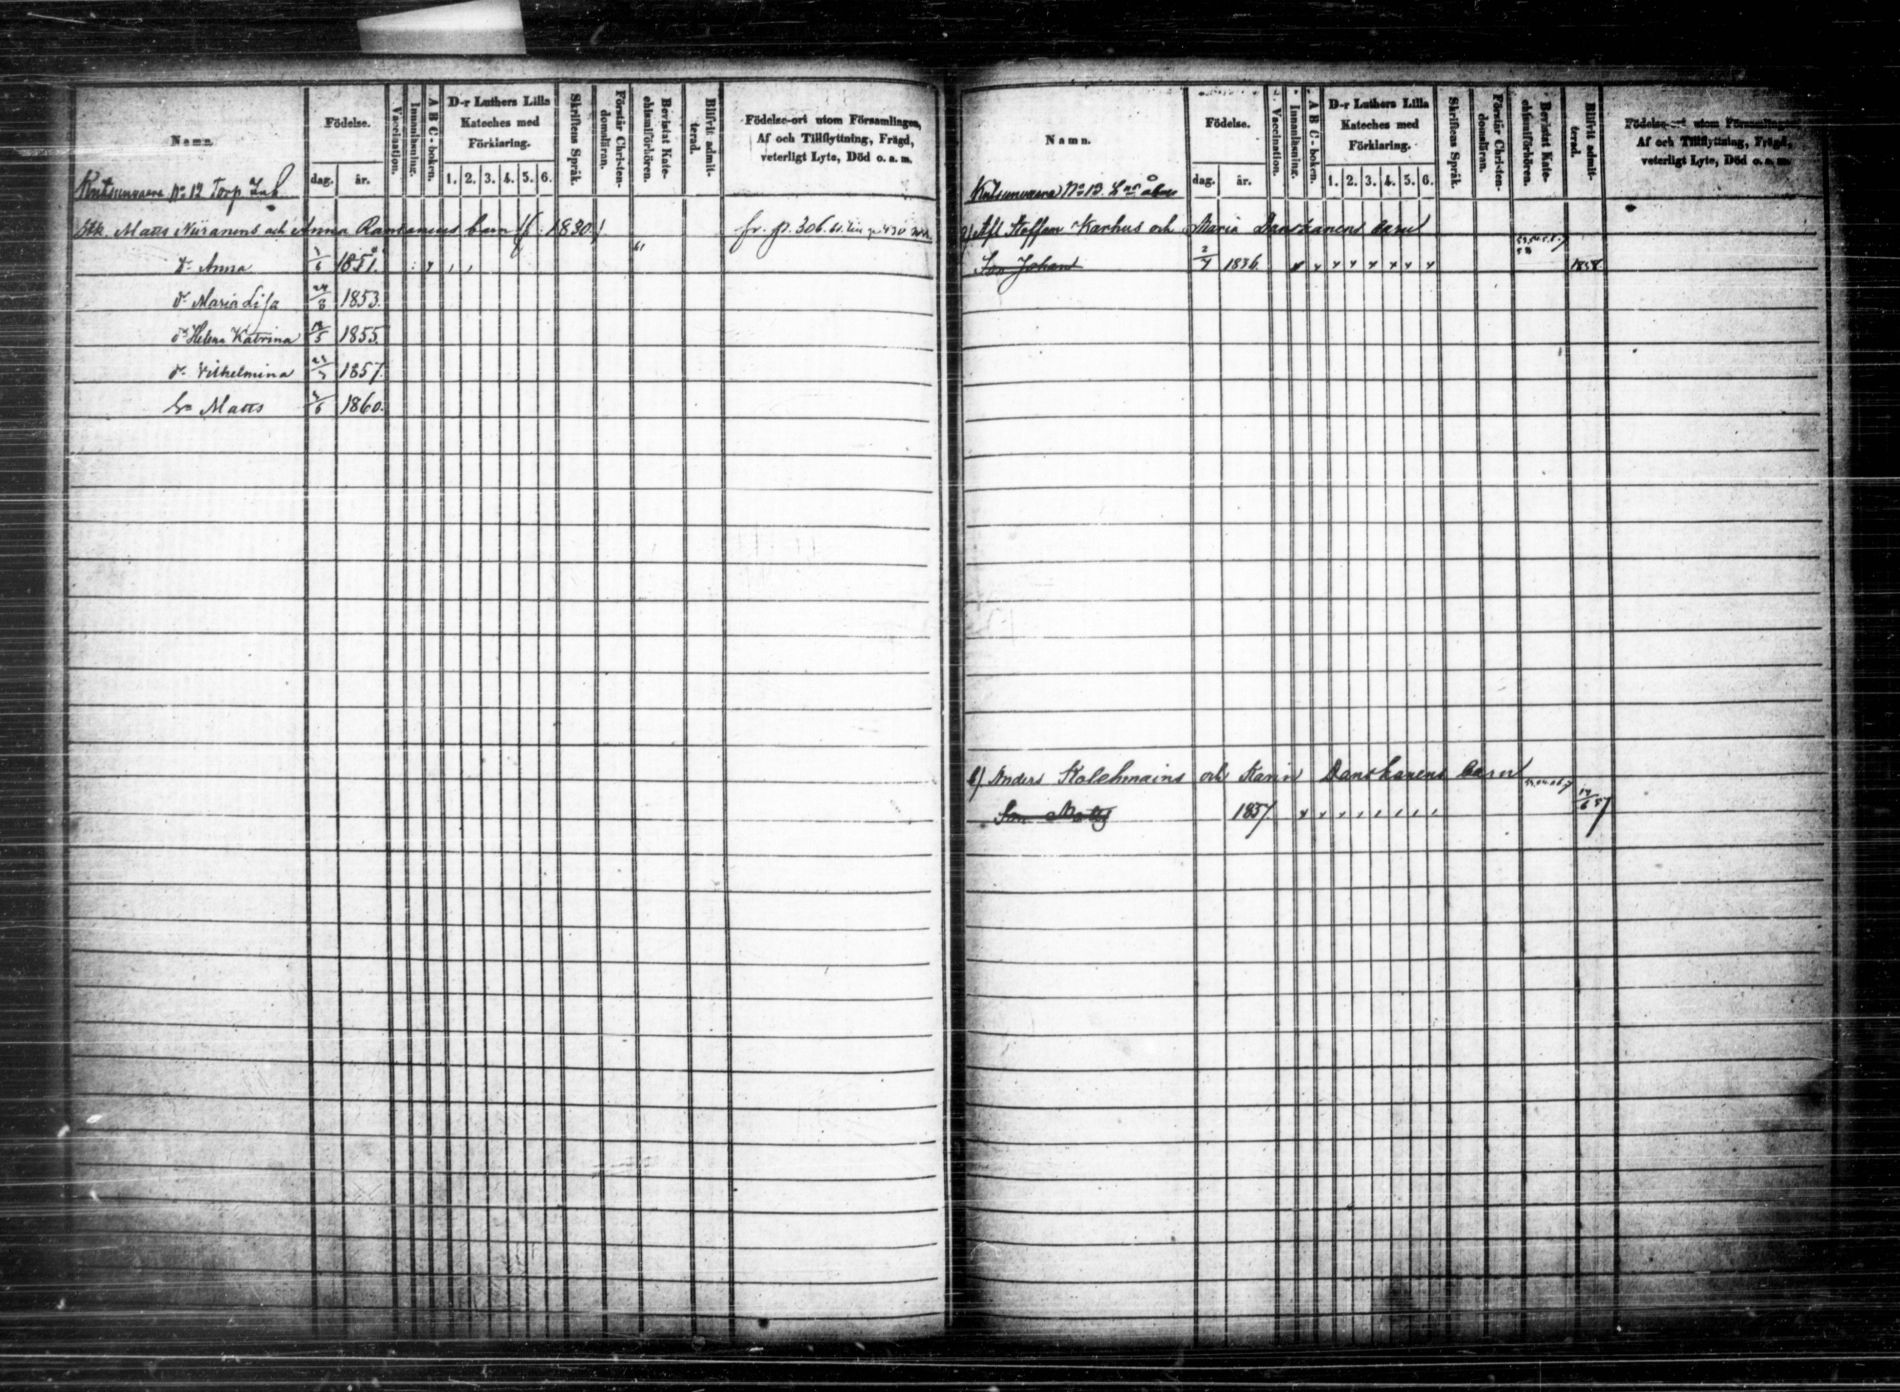 Namn.
Födelse.
dag. år.
Vaccination.
Innanläsning.
A B C-boken.
D-r Luthers Lilla
Kateches med
Förklaring.
1. 2. 3. 4. 5. 6.
Skriftens Språk.
Förstår Christendomsläran.
Bevistat Katechismiförhören.
Blifvit admitterad.
Födelse-ort utom Församlingen,
Af och Tillflyttning, Frägd,
veterligt Lyte, Död o. a. m.
No 12 Torp
Matts Niiranens och Anna Rantanens barn f. 1830 fr. p. 306
Dr Anna 1851.
dr Maria Lisa 24/8 1853.
dr Helena Katrina 1855.
dr Vilhelmina 1857.
Matts 1860.
Namn.
Födelse.
dag. år.
Vaccination.
Innanläsning.
A B C-boken.
D-r Luthers Lilla
Kateches med
Förklaring.
1. 2. 3. 4. 5. 6.
Skriftens Språk.
Förstår Christendomsläran.
Bevistat Katechismiförhören.
Blifvit admitterad.
Födelse-ort utom Församlingen,
Af och Tillflyttning, Frägd,
veterligt Lyte, Död o. a. m.
No 12.
Staffan Karhus och Maria Danskanens barn
Son Johan 2/7 1836. 1858
b) Anders och Karin Danskanens barn
Son Matts 1837